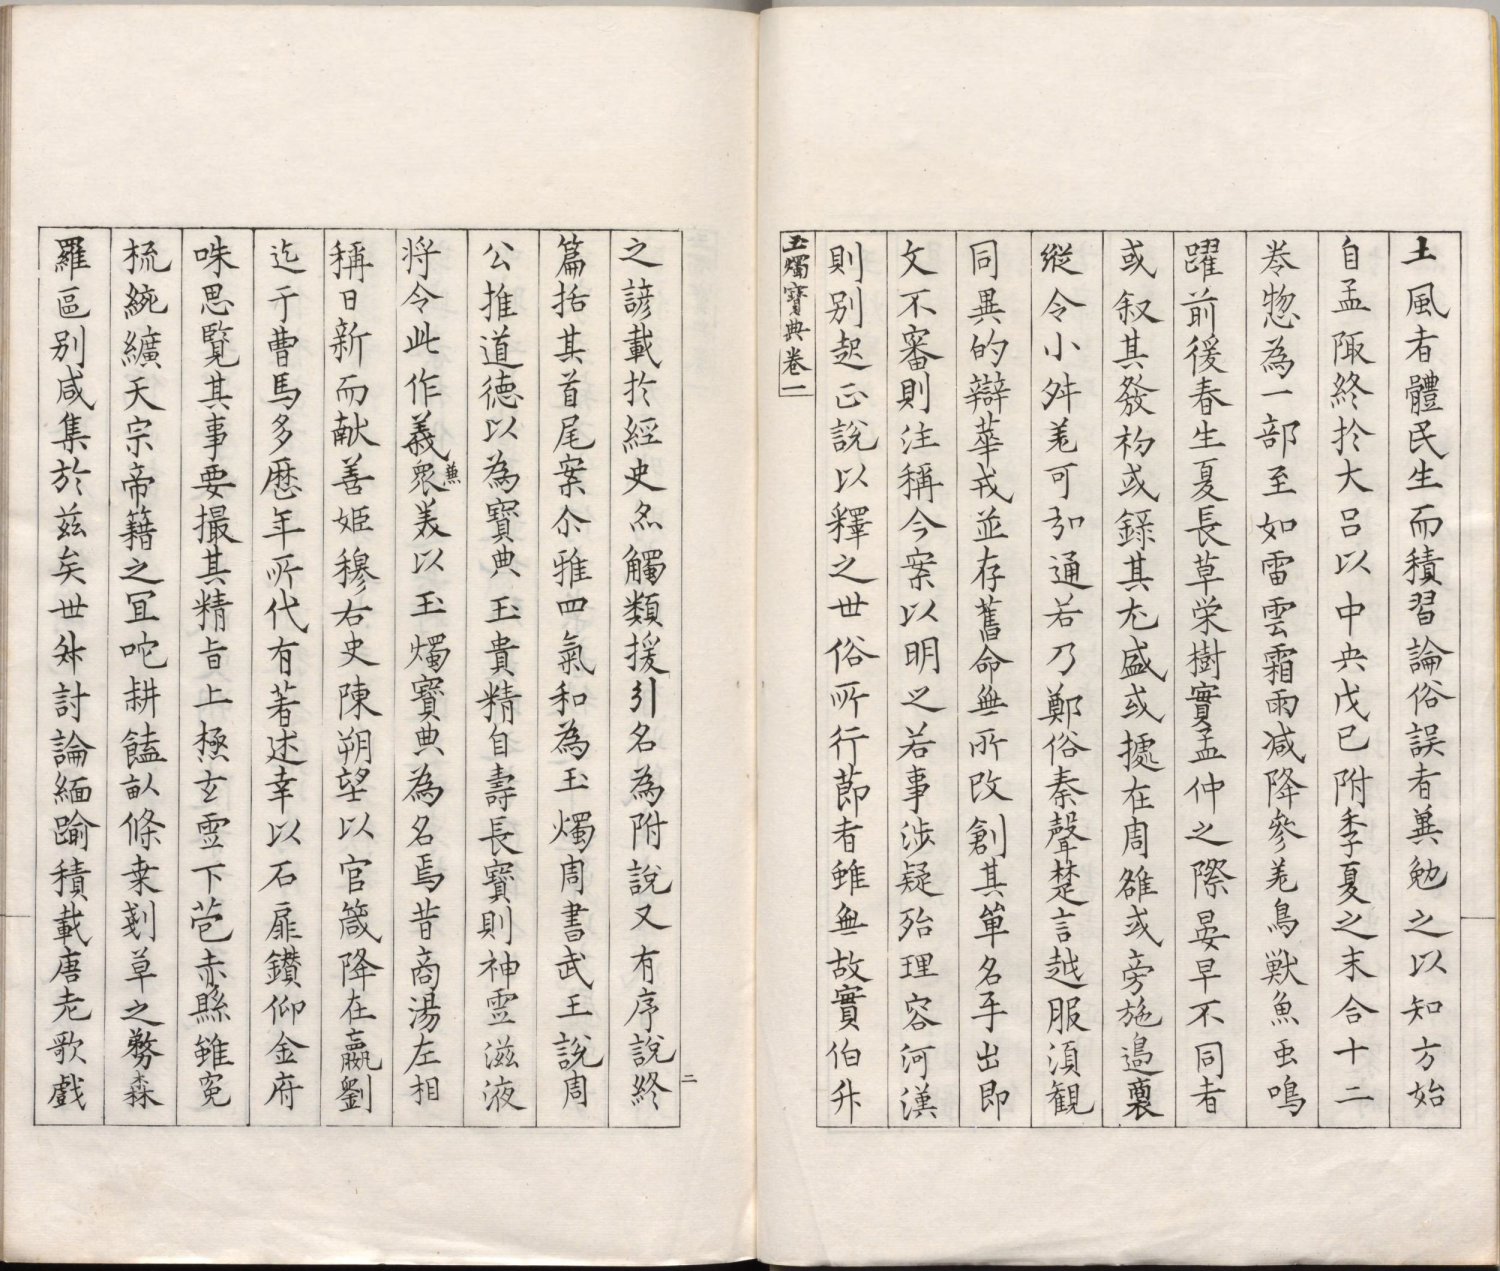 土風者體民生而積習論俗誤者兾勉之以知方始
自孟陬終於大呂以中央戊已附季夏之末合十二
卷惣為一部至如雷雲霜雨减降參差鳥獸魚虫鳴
躍前後春生夏長草栄樹實孟仲之際晏早不同者
或叙其發初或録其尤盛或據在周雒或旁施邉裔
縱令小舛差可引通若乃鄭俗秦聲楚言越服湏観
同異的辯華戎並存舊命無所改創其單名手出即
文不審則注稱今案以明之若事渉疑殆理容河漢
則别起正說以釋之世俗所行節者雖無故實伯升
玉燭寶典卷一
之諺載於經史亦觸類援引名為附說又有序說終
篇括其首尾案尒雅四氣和為玉燭周書武王說周
公推道德以為寶典玉貴精自壽長寶則神霊滋液
将令此作義兼衆美以玉燭寶典為名焉昔商湯左相
稱日新而献善姬穆右史陳朔望以官箴降在嬴劉
迄于曹馬多歴年所代有著述幸以石扉鑚仰金府
咮思覧其事要撮其精旨上極玄霊下苞赤縣雖寃
梳䋎纊天宗帝籍之冝咜耕饁畝條桒剗草之務森
羅區别咸集於兹矣世舛討論緬踰積載唐老歌戲
二